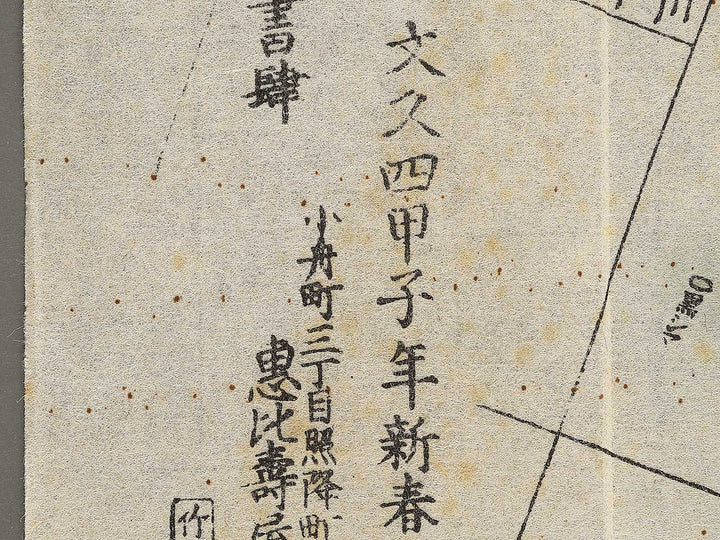 川
文久四甲子年新春
小舟町三丁目照降町
書肆
恵比壽屋
竹